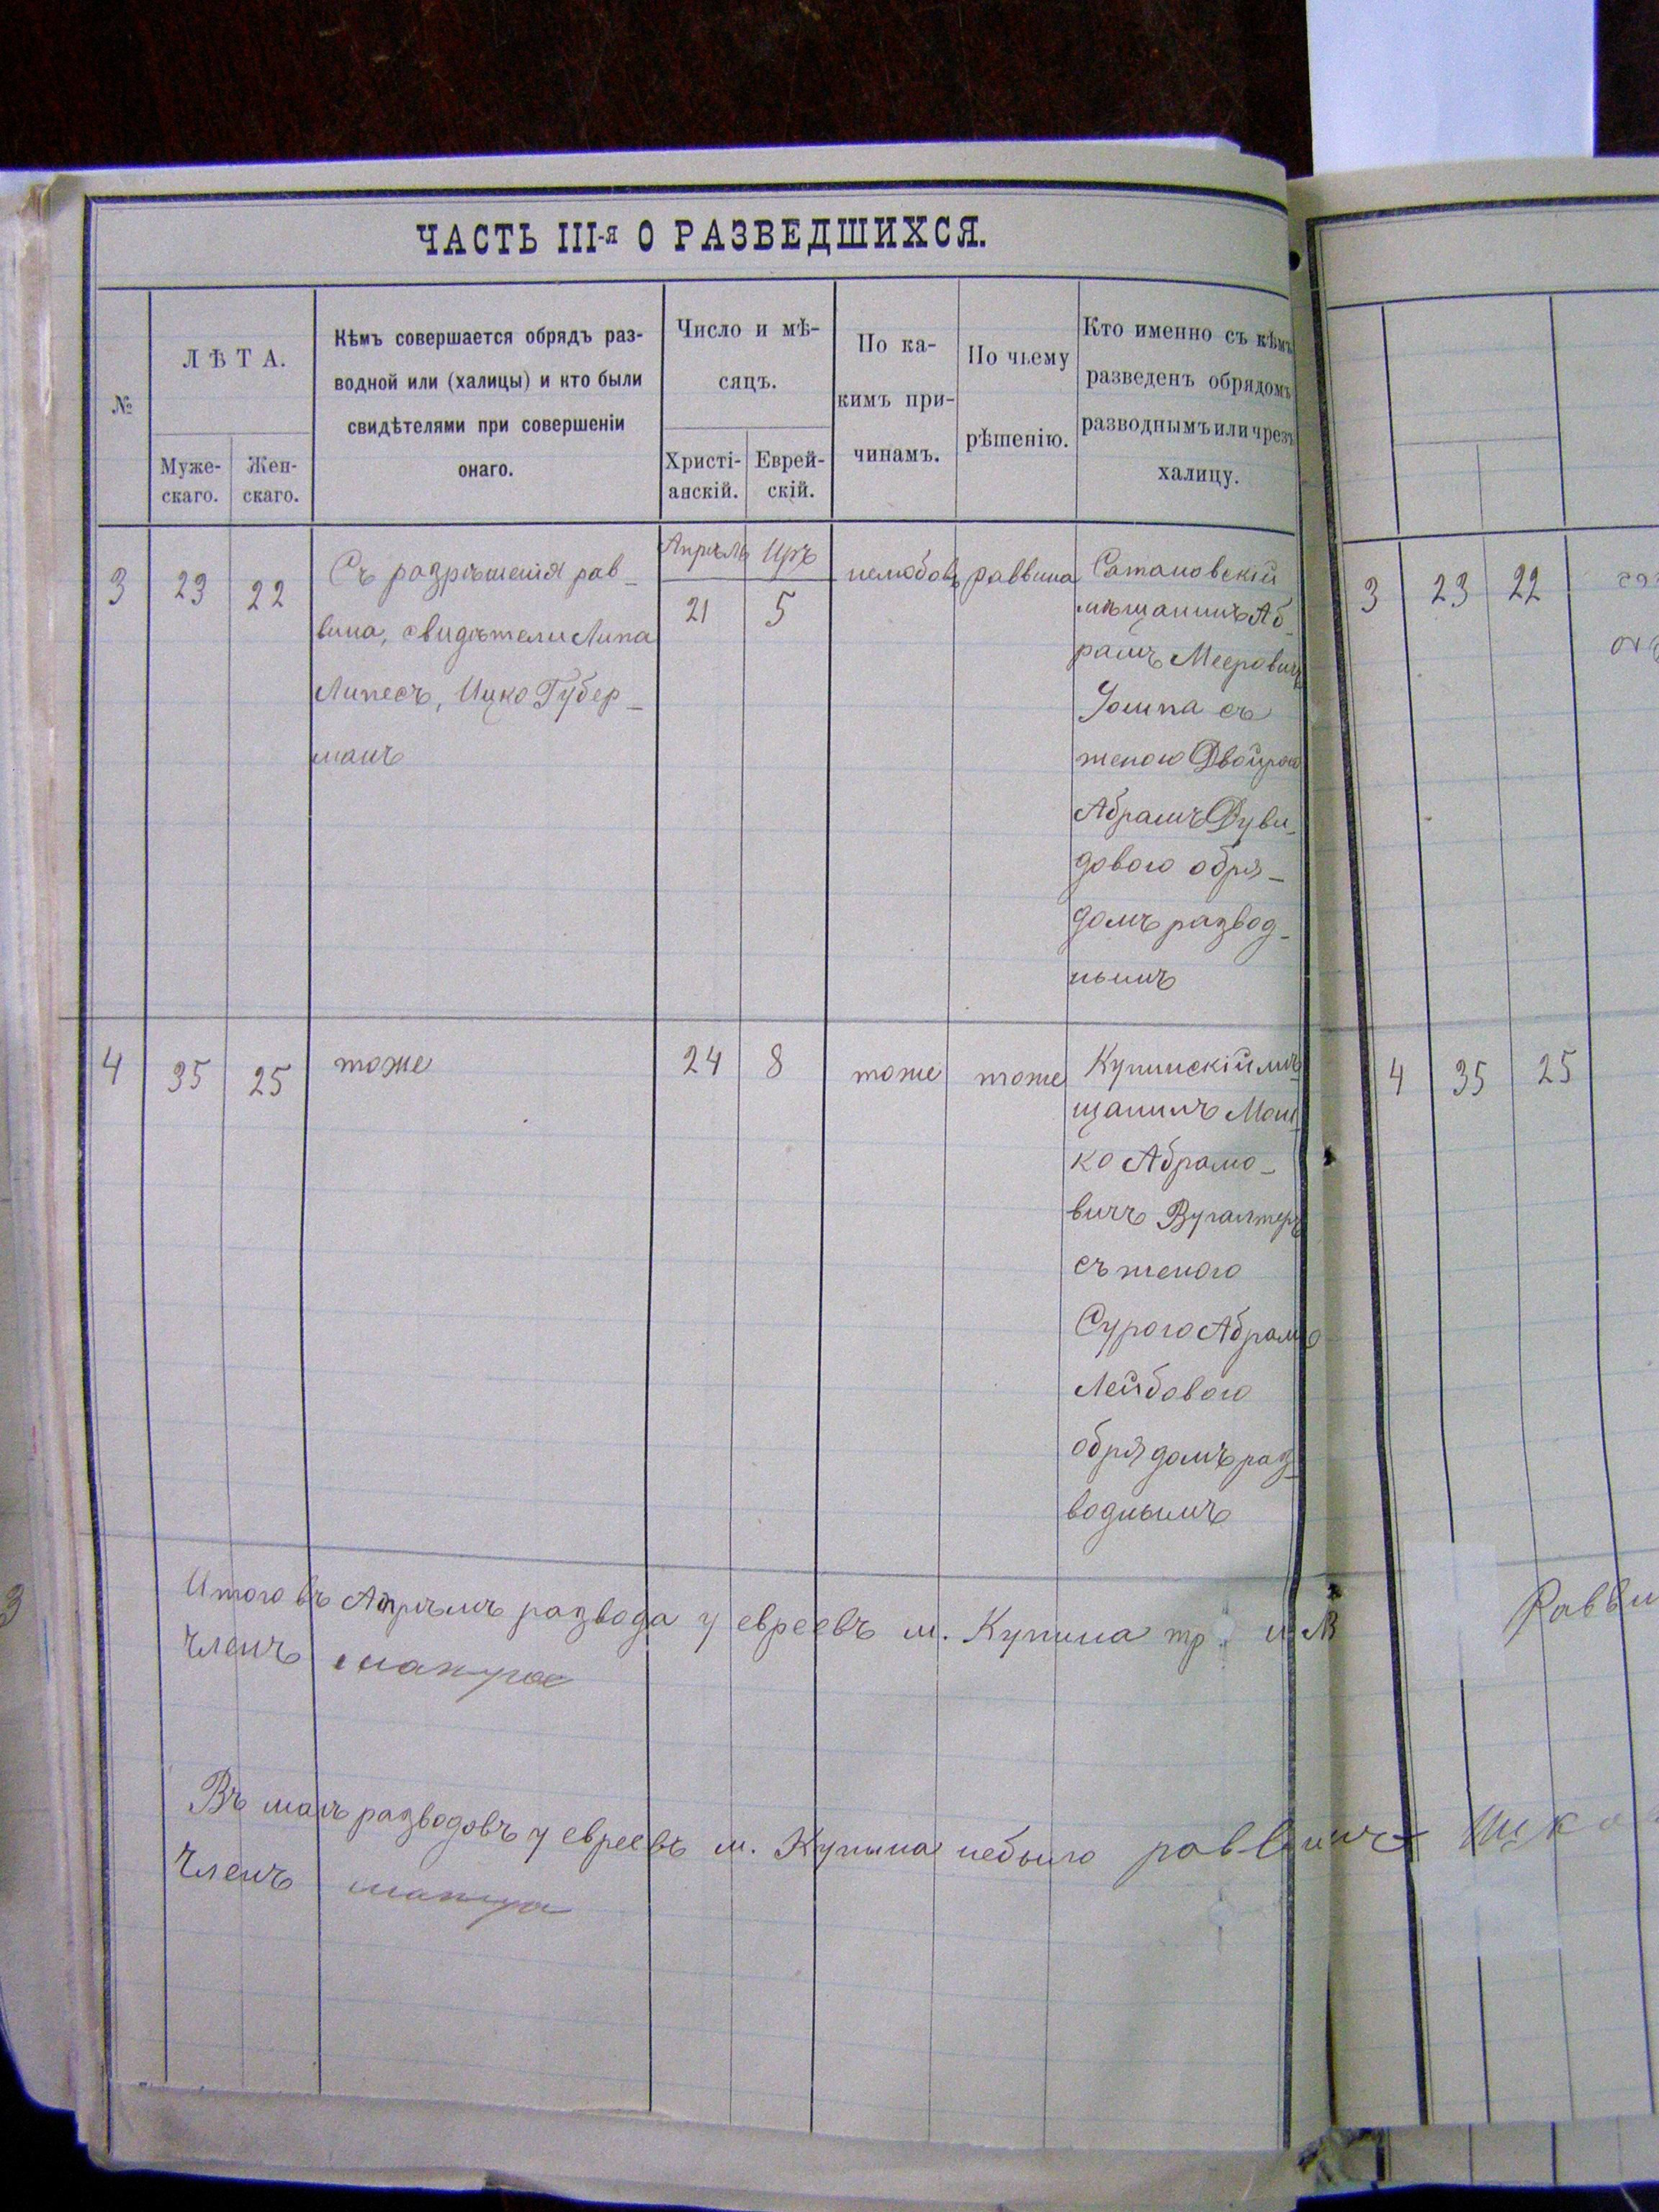 ЧАСТЬ III-я О РАЗВЕДШИХСЯ.
№
ЛѢТА.
Муже-
скаго.
Жен-
скаго.
Кѣмъ совершается обрядъ раз-
водной или (халицы) и кто были
свидѣтелями при совершеніи
онаго.
Число и мѣ-
сяцъ.
Христі-
анскій.
Еврей-
скій.
По ка-
кимъ при-
чинамъ.
По чьему
рѣшенію.
Кто именно съ кѣмъ
разведенъ обрядомъ
разводнымъ или чрезъ
халицу.
3
23
22
Съ разрѣшенія рав-
вина, свидѣтели Липа
Липесъ, Ицко Губер-
манъ
Апрѣль
21
Иръ
5
нелюбовь
раввина
Сатановскій
мѣщанинъ Аб-
рамъ Мееровичъ
съ
женою Двойрою
Абрамъ Дуви-
довою обря-
домъ развод-
нымъ
4
35
25
тоже
24
8
тоже
тоже
Купинскій мѣ-
щанинъ Мош-
ко Абрамо-
вичъ Бугалтеръ
съ женою
Сурою Абрамъ
Лейбовою
обрядомъ раз-
воднымъ
Итого въ Апрѣлѣ развода у евреевъ м. Купина
Членъ
Въ маѣ разводовъ у евреевъ м. Купина небыло раввинъ Ицко
Членъ
3
23
22
4
35
25
Равви